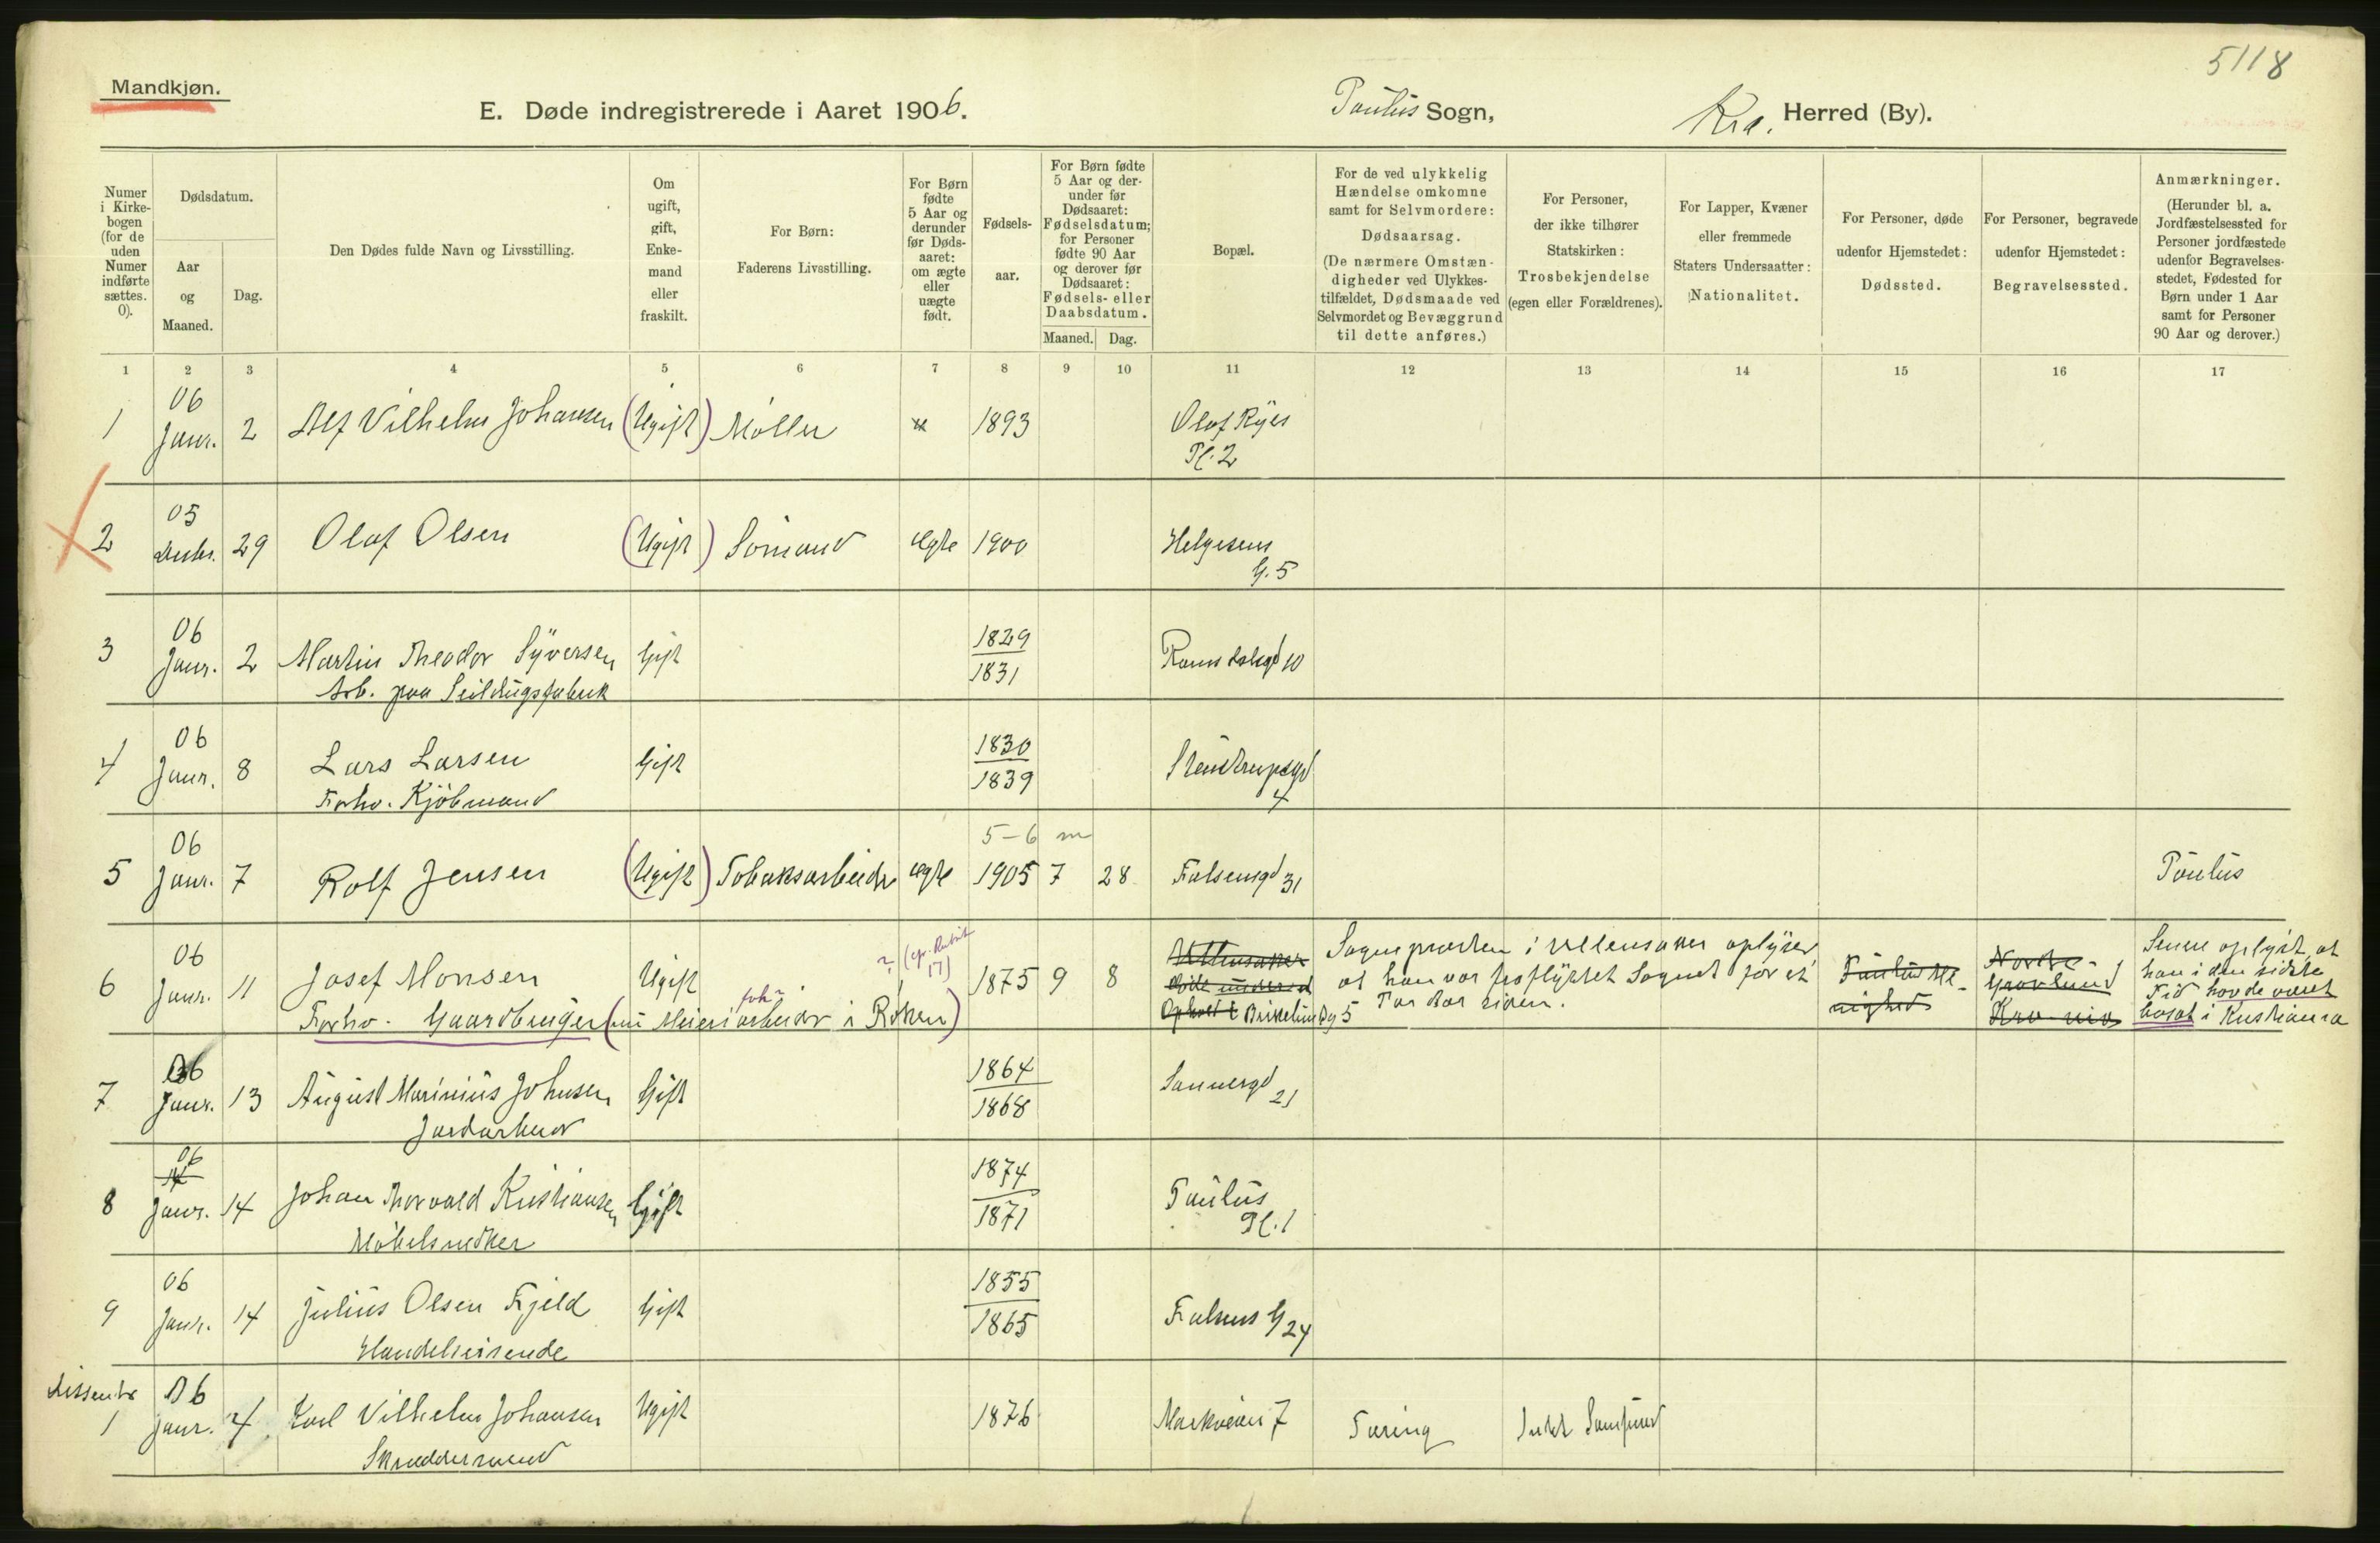 5118
Mandkjøn.
E. Døde indregistrerede i Aaret 1906.
Paulus Sogn,
Kra. Herred (By).
Numer i Kirkebogen (for de uden Numer indførte sættes. 0).
Dødsdatum.
Aar og Maaned.
Dag.
Den Dødes fulde Navn og Livsstilling.
Om ugift, gift, Enkemand eller fraskilt.
For Børn: Faderens Livsstilling.
For Børn fødte 5 Aar og derunder før Dødsaaret: om ægte eller uægte født.
Fødselsaar.
For Børn fødte 5 Aar og derunder før Dødsaaret: Fødselsdatum; for Personer fødte 90 Aar og derover før Dødsaaret: Fødsels- eller Daabsdatum.
Maaned. Dag.
Bopæl.
For de ved ulykkelig Hændelse omkomne samt for Selvmordere: Dødsaarsag. (De nærmere Omstændigheder ved Ulykkestilfældet, Dødsmaade ved Selvmordet og Bevæggrund til dette anføres.)
For Personer, der ikke tilhører Statskirken: Trosbekjendelse (egen eller Forældrenes).
For Lapper, Kvæner eller fremmede Staters Undersaatter: Nationalitet.
For Personer, døde udenfor Hjemstedet: Dødssted.
For Personer, begravede udenfor Hjemstedet: Begravelsessted.
Anmærkninger. (Herunder bl. a. Jordfæstelsessted for Personer jordfæstede udenfor Begravelsesstedet, Fødested for Børn under 1 Aar samt for Personer 90 Aar og derover.)
1 2 3 4 5 6 7 8 9 10 11 12 13 14 15 16 17
06
1 Janr. 2 Alf Vilhelm Johansen (Ugift) Møller 1893 Olaf Ryes
Pl. 2
05
2 Decbr. 29 Olaf Olsen (Ugift) Sømand ægte 1900 Helgesens
G. 5
06
3 Janr. 2 Martin Theodor Syversen Gift 1829
1831 Romsdalsgd 10
Arb. paa Seildugsfabrik
06
4 Janr. 8 Lars Larsen Gift 1830
1839 Steenstrupsgd
4
Forhv. Kjøbmand
06 5-6 m
5 Janr. 7 Rolf Jensen (Ugift) Tobaksarbeider ægte 1905 7 28 Falsensgd 31 Paulus
06 ? (cfr. Rubrik 17)
6 Janr. 11 Josef Monsen Ugift 1875 9 8
Forhv. Gaardbruger (nu Meieriarbeider i Røken)
Ullensaker
Ophold: Birkelundg 5
Sognepresten i Ullensaker oplyser
at han var fraflyttet Sognet for et
Par Aar siden.
Paulus Me-
nighed
Nordre
Gravlund
Kra-nia
Senere oplyst, at
han i den sidste
Tid havde været
bosat i Kristiania
06
7 Janr. 13 August Marinius Johnsen Gift 1864
1868 Sannergd 21
Jordarbeid
06
8 Janr. 14 Johan Thorvald Kristiansen Gift 1874
1871 Paulus
Pl. 1
Møbelsnedker
06
9 Janr. 14 Julius Olsen Fjeld Gift 1855
1865 Falsens G 24
Handelsreisende
Dissenter 06
1 Janr. 4 Karl Vilhelm Johansen Ugift 1876 Markveien 7 Tæring
Skræddersvend